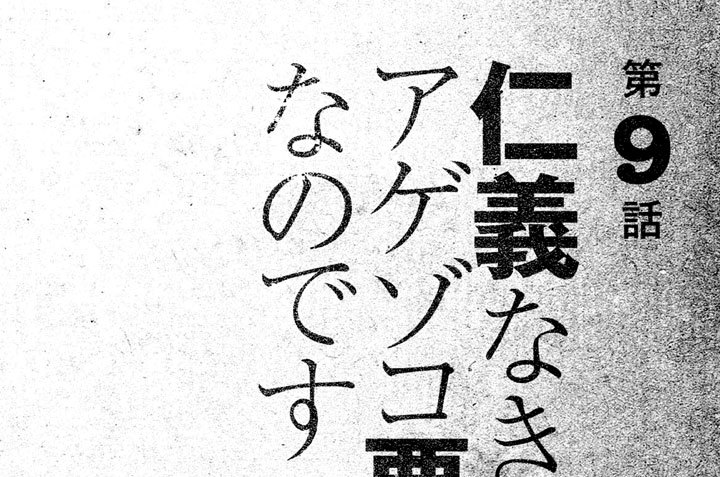 第9話
仁義なき
アゲゾコ
なのです